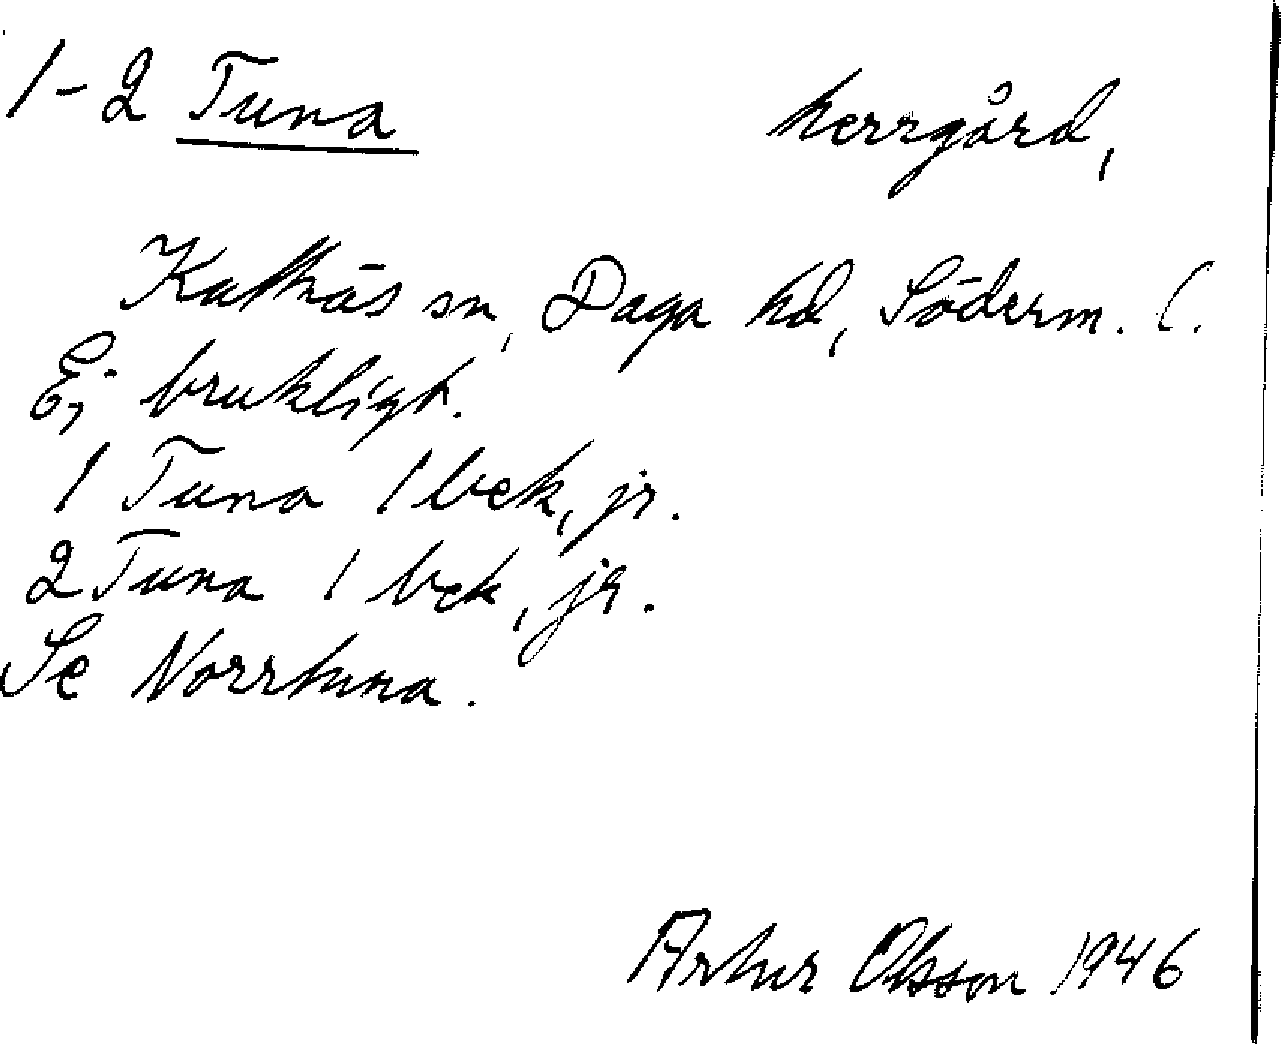 1-2 Tuna herrgård,
Kattnäs sn, Daga hd, Söderm. l.
Ej brukligt.
1 Tuna 1 bek, jr.
2 Tuna 1 bek, jr.
Se Norrtuna.
Arthur Olsson 1946